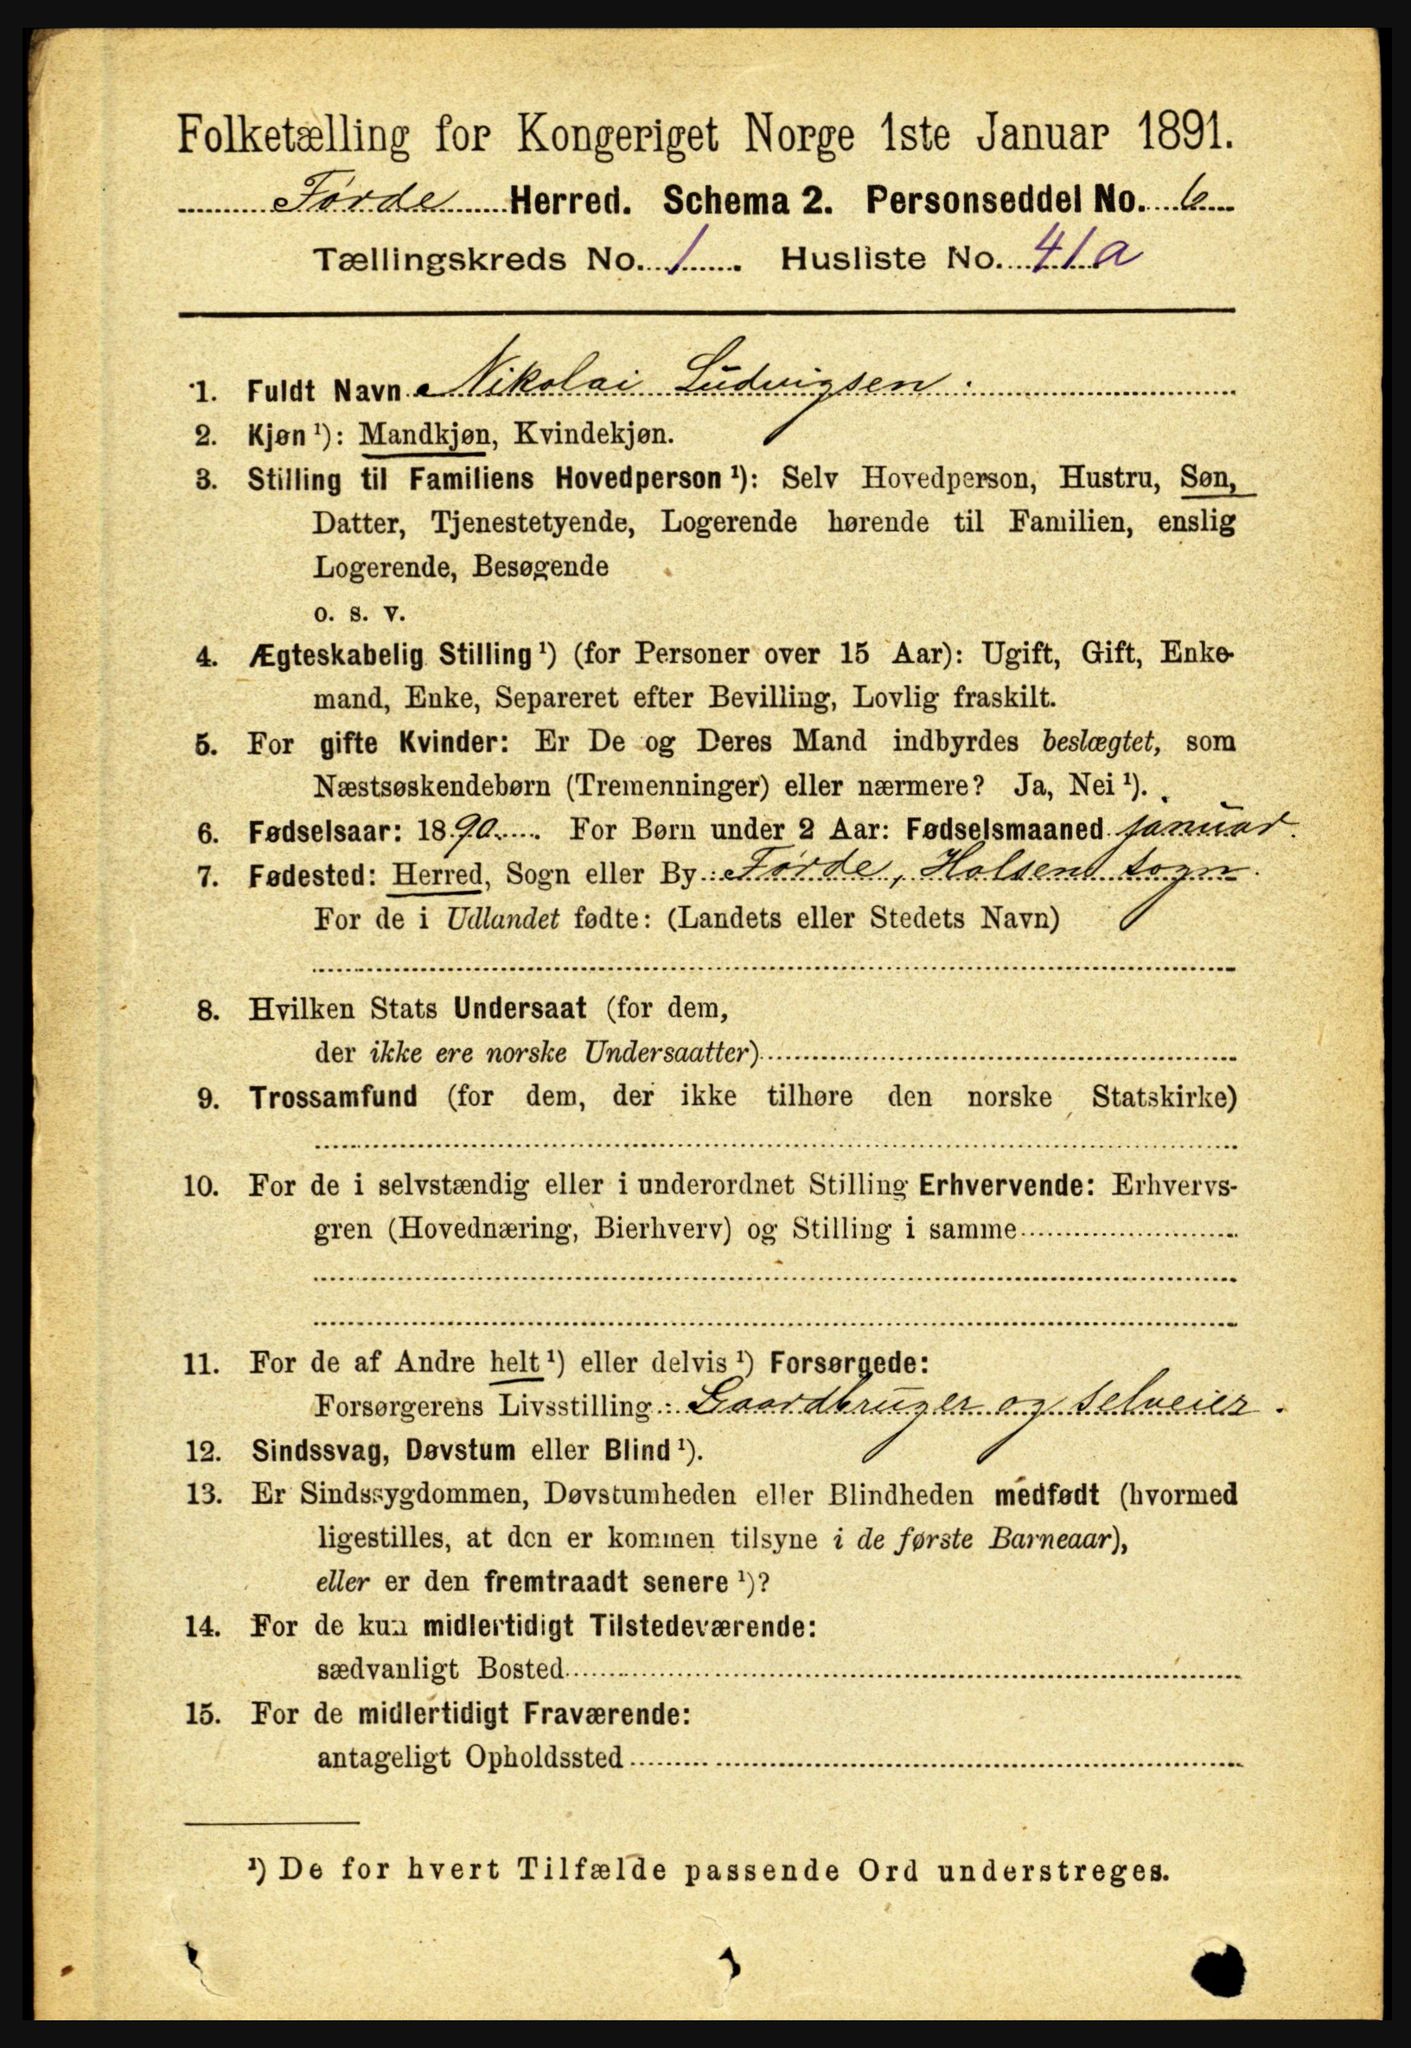 Folketælling for Kongeriget Norge 1ste Januar 1891.
Førde Herred. Schema 2. Personseddel No. 6
Tællingskreds No. 1. Husliste No. 41a
1. Fuldt Navn Nikolai Ludvigsen.
2. Kjøn¹): Mandkjøn, Kvindekjøn.
3. Stilling til Familiens Hovedperson¹): Selv Hovedperson, Hustru, Søn,
Datter, Tjenestetyende, Logerende hørende til Familien, enslig
Logerende, Besøgende
o. s. v.
4. Ægteskabelig Stilling¹) (for Personer over 15 Aar): Ugift, Gift, Enke-
mand, Enke, Separeret efter Bevilling, Lovlig fraskilt.
5. For gifte Kvinder: Er De og Deres Mand indbyrdes beslægtet, som
Næstsøskendebørn (Tremenninger) eller nærmere? Ja, Nei¹).
6. Fødselsaar: 1890. For Børn under 2 Aar: Fødselsmaaned januar.
7. Fødested: Herred, Sogn eller By: Førde, Holsens sogn.
For de i Udlandet fødte: (Landets eller Stedets Navn)
8. Hvilken Stats Undersaat (for dem,
der ikke ere norske Undersaatter)
9. Trossamfund (for dem, der ikke tilhøre den norske Statskirke)
10. For de i selvstændig eller i underordnet Stilling Erhvervende: Erhvervs-
gren (Hovednæring, Bierhverv) og Stilling i samme
11. For de af Andre helt¹) eller delvis¹) Forsørgede:
Forsørgerens Livsstilling: Gaardbruger og selveier.
12. Sindssvag, Døvstum eller Blind¹).
13. Er Sindssygdommen, Døvstumheden eller Blindheden medfødt (hvormed
ligestilles, at den er kommen tilsyne i de første Barneaar),
eller er den fremtraadt senere¹)?
14. For de kun midlertidigt Tilstedeværende:
sædvanligt Bosted
15. For de midlertidigt Fraværende:
antageligt Opholdssted
¹) De for hvert Tilfælde passende Ord understreges.